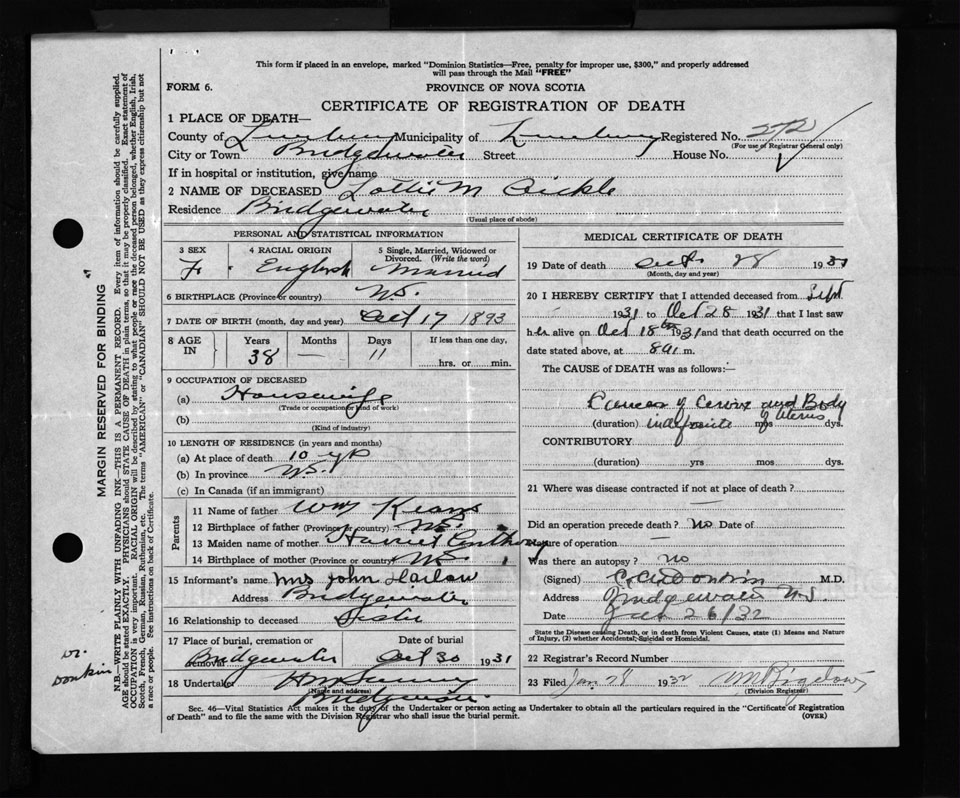 This form if placed in an envelope, marked "Dominion Statistics—Free, penalty for improper use, $300," and properly addressed
will pass through the Mail "FREE"
FORM 6.
PROVINCE OF NOVA SCOTIA
CERTIFICATE OF REGISTRATION OF DEATH
1 PLACE OF DEATH—
County of Lunenburg Municipality of Lunenburg Registered No. 272
(For use of Registrar General only)
City or Town Bridgewater Street House No.
If in hospital or institution, give name
2 NAME OF DECEASED Lottie M
Residence Bridgewater
(Usual place of abode)
PERSONAL AND STATISTICAL INFORMATION
3 SEX 4 RACIAL ORIGIN 5 Single, Married, Widowed or
Divorced. (Write the word)
F. English Married
6 BIRTHPLACE (Province or country) N.S.
7 DATE OF BIRTH (month, day and year) Oct 17 1893
8 AGE IN Years Months Days If less than one day,
38 — 11 hrs. or min.
9 OCCUPATION OF DECEASED
(a) Housewife
(Trade or occupation or kind of work)
(b)
(Kind of industry)
10 LENGTH OF RESIDENCE (in years and months)
(a) At place of death 10 yrs
(b) In province N.S.
(c) In Canada (if an immigrant)
Parents
11 Name of father Wm
12 Birthplace of father (Province or country) N.S.
13 Maiden name of mother Harriet
14 Birthplace of mother (Province or country) N.S.
15 Informant's name Mrs John Harlow
Address Bridgewater
16 Relationship to deceased Sister
17 Place of burial, cremation or removal Date of burial
Bridgewater Oct 30 1931
18 Undertaker
(Name and address)
Bridgewater
MEDICAL CERTIFICATE OF DEATH
19 Date of death Oct. 28 1931
(Month, day and year)
20 I HEREBY CERTIFY that I attended deceased from Sept
1931 to Oct 28 1931 that I last saw
her alive on Oct 18 1931 and that death occurred on
date stated above, at 8 a. m.
The CAUSE of DEATH was as follows:—
Cancer of Cervix and Body
of Uterus
(duration) indefinite mos dys.
CONTRIBUTORY
(duration) yrs mos dys.
21 Where was disease contracted if not at place of death?
—
Did an operation precede death? No Date of
Nature of operation —
Was there an autopsy? no
(Signed) Donkin M.D.
Address Bridgewater N.S.
Date 26/32
State the Disease causing Death, or in death from Violent Causes, state (1) Means and Nature
of Injury, (2) whether Accidental, Suicidal or Homicidal.
22 Registrar's Record Number
23 Filed Jan. 28 1932 Bigelow
(Division Registrar)
Sec. 46—Vital Statistics Act makes it the duty of the Undertaker or person acting as Undertaker to obtain all the particulars required in the "Certificate of Registration
of Death" and to file the same with the Division Registrar who shall issue the burial permit. (OVER)
MARGIN RESERVED FOR BINDING
N.B.—WRITE PLAINLY WITH UNFADING INK—THIS IS A PERMANENT RECORD. Every item of information should be carefully supplied.
AGE should be stated EXACTLY. PHYSICIANS should STATE CAUSE OF DEATH in plain terms, so that it may be properly classified. Exact statement of
OCCUPATION is very important. RACIAL ORIGIN will be described by stating to what people or race the deceased person belonged, whether English, Irish,
Scotch, French, German, Russian, Ruthenian, etc. The terms "AMERICAN" or "CANADIAN" SHOULD NOT BE USED as they express citizenship but not
a race or people. See instructions on back of Certificate.
Dr.
Donkin